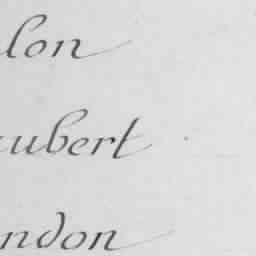 lon
ubert
ndon